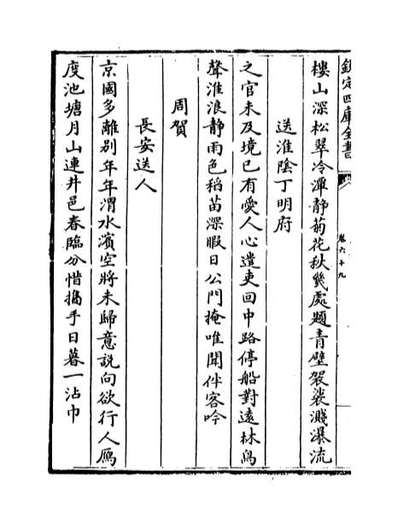 欽定四庫全書
卷六十九
樓山深松翠冷潭靜菊花秋幾處題青壁袈裟濺瀑流
送淮陰丁明府
之官未及境已有愛人心遣吏回中路停船對遠林鳥
聲淮浪靜雨色稻苗深暇日公門掩唯聞伴客吟
周賀
長安送人
京國多離别年年渭水濱空將未歸意說向欲行人鴈
度池塘月山連井邑春臨分惜攜手日暮一沾巾